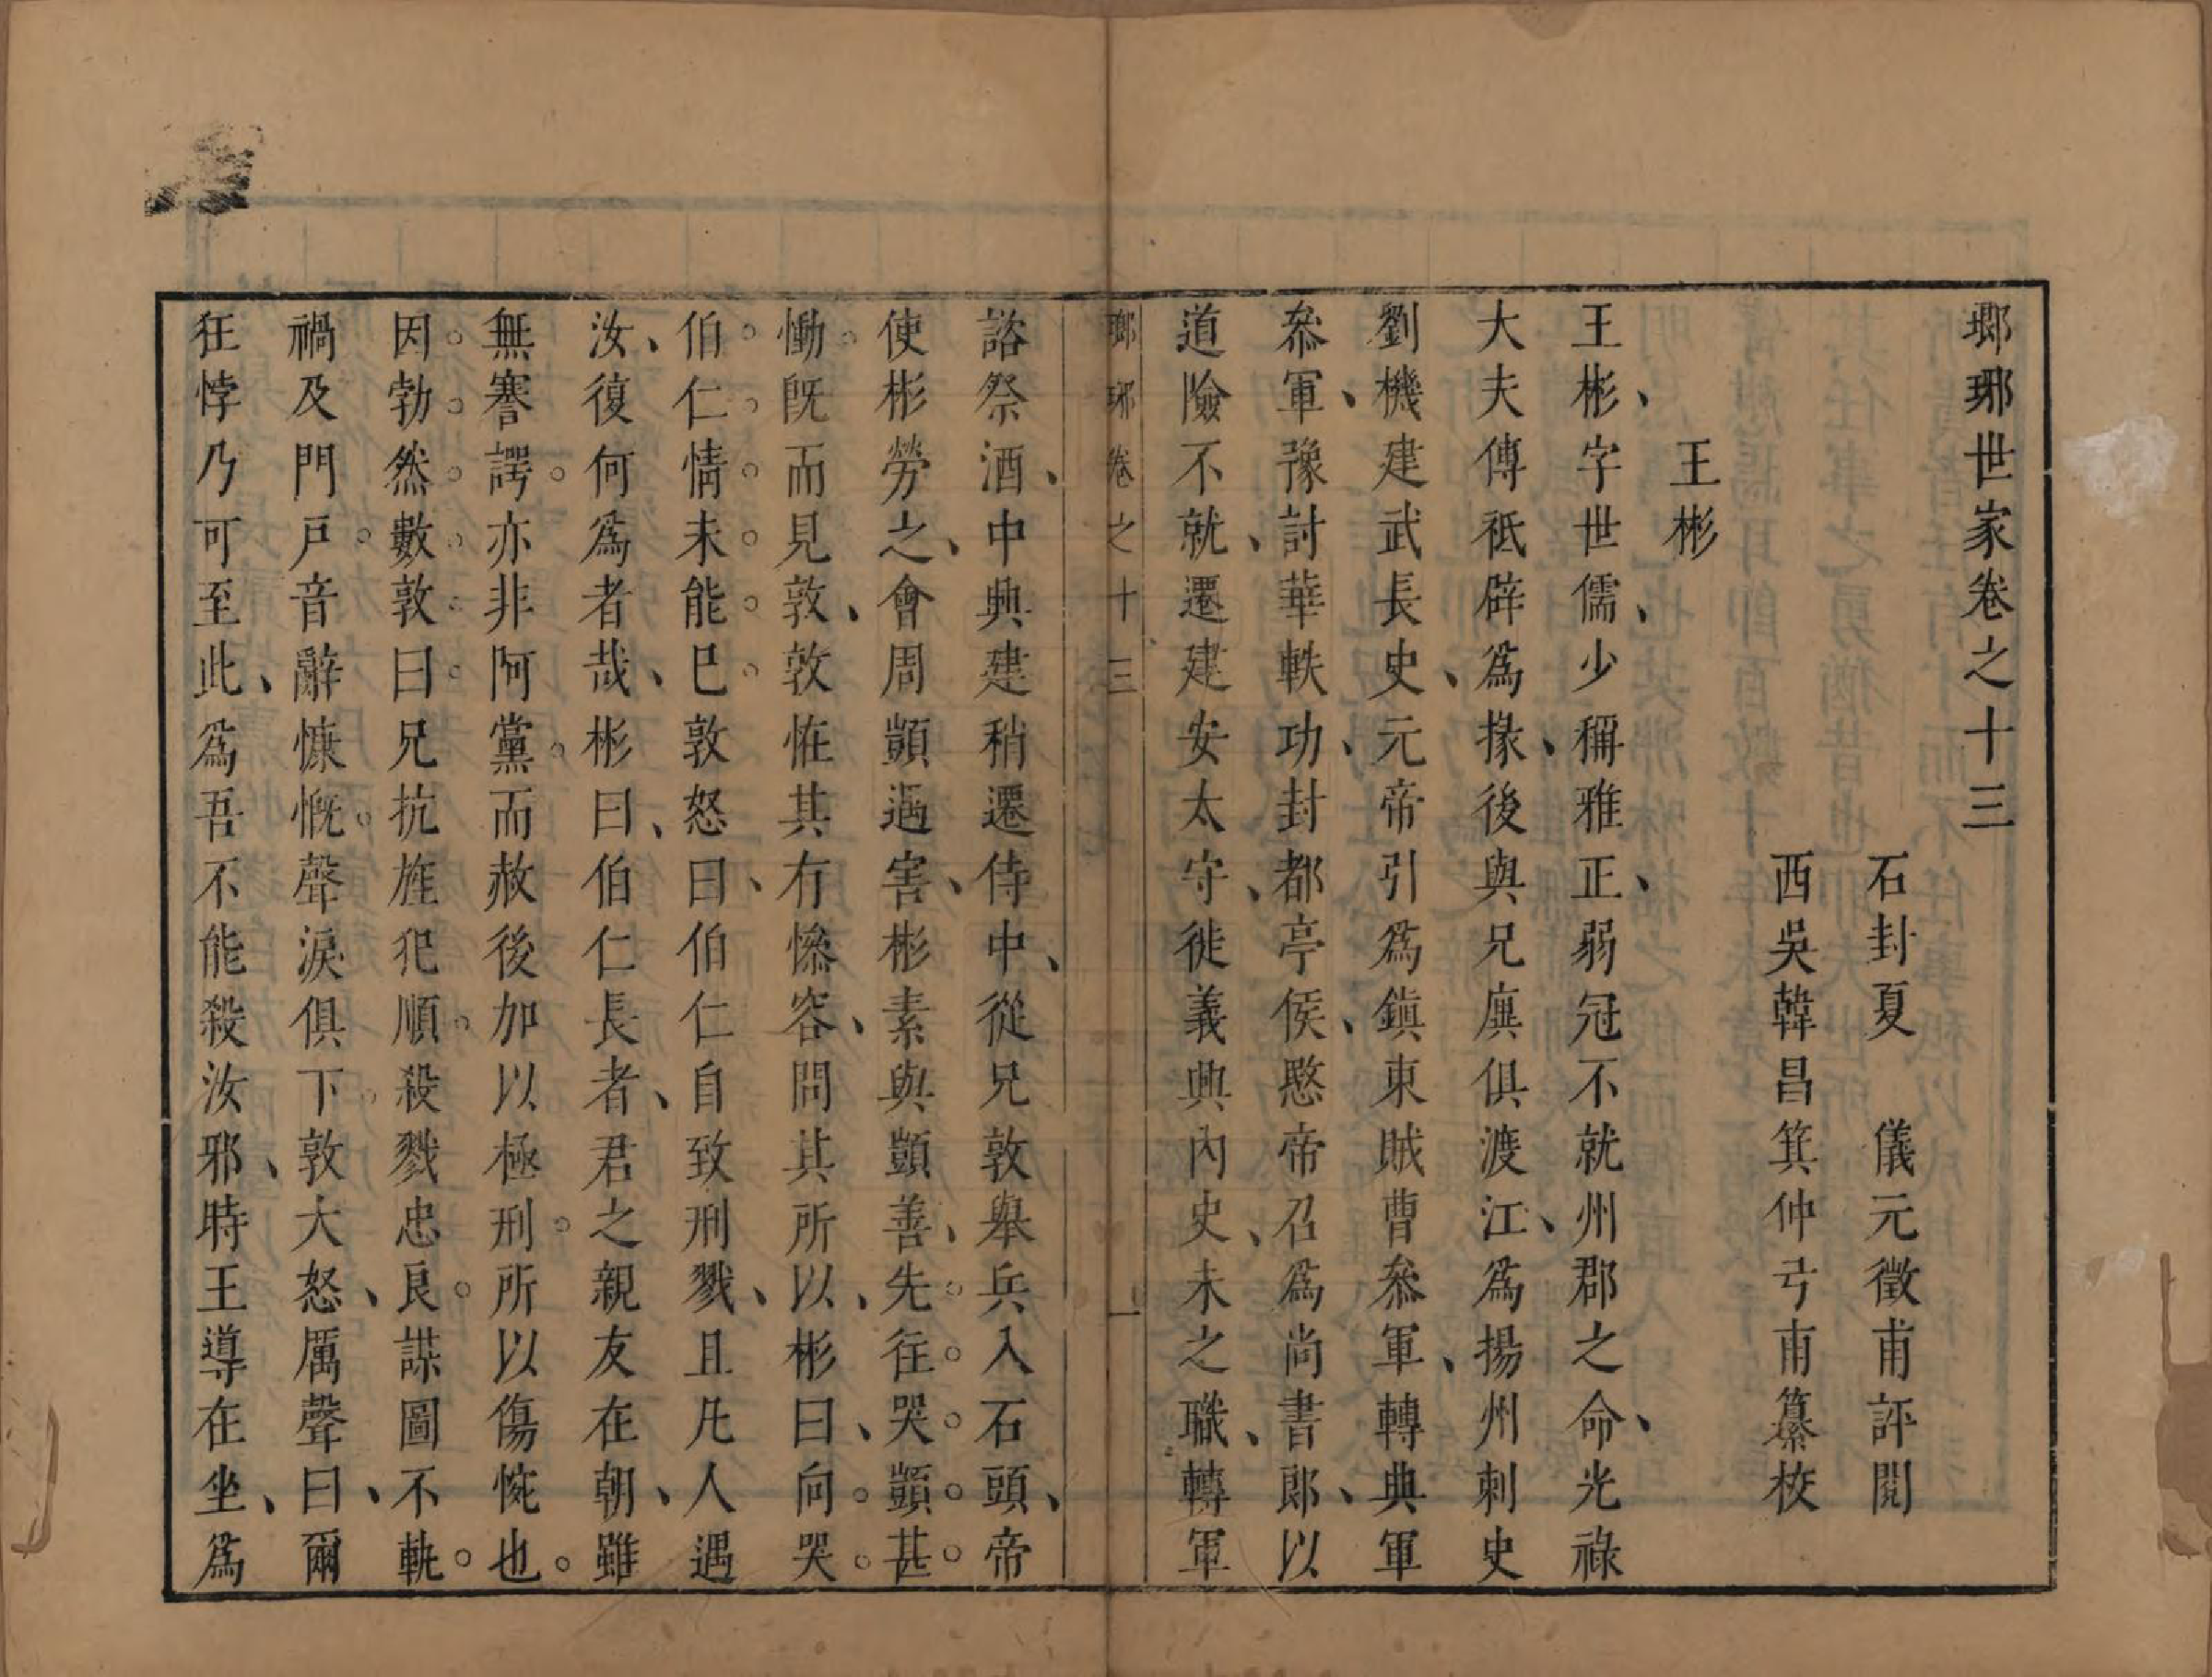 瑯琊世家卷之十三
石封夏　儀元徵甫評閱
西吳韓昌箕仲弓甫纂校
王彬
王彬、字世儒、少稱雅正、弱冠不就州郡之命、光祿
大夫傅祗辟爲掾、後與兄廙俱渡江、爲揚州刺史
劉機建武長史、元帝引爲鎮東賊曹叅軍、轉典軍
叅軍、豫討華軼功、封都亭侯、愍帝召爲尚書郎、以
道險不就、遷建安太守、徙義興內史、未之職、轉軍
瑯琊卷之十三　一
諮祭酒、中興建稍遷侍中、從兄敦舉兵入石頭、帝
使彬勞之、會周顗遇害、彬素與顗善、先。往。哭。顗。甚。
慟。旣而見敦、敦怪其有慘容、問其所以、彬曰、向。哭。
伯。仁。情。未。能。已。敦怒曰、伯仁自致刑戮、且凡人遇
汝、復何爲者哉、彬曰、伯仁長者、君之親友在朝、雖
無謇諤。亦非阿黨。而赦後加以極刑。所以傷惋也。
因。勃。然。數。敦。曰。兄抗旌犯順。殺戮忠良。謀圖不軌。
禍及門戶。音辭慷慨。聲淚俱下。敦大怒、厲聲曰、爾
狂悖乃可至此、爲吾不能殺汝邪、時王導在坐、爲